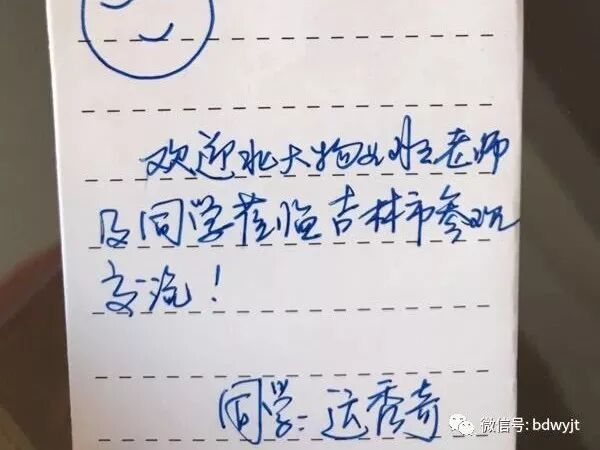 欢迎北大物业班老师
及同学莅临吉林市参观
交流！
同学：运秀奇
微信号: bdwyjt